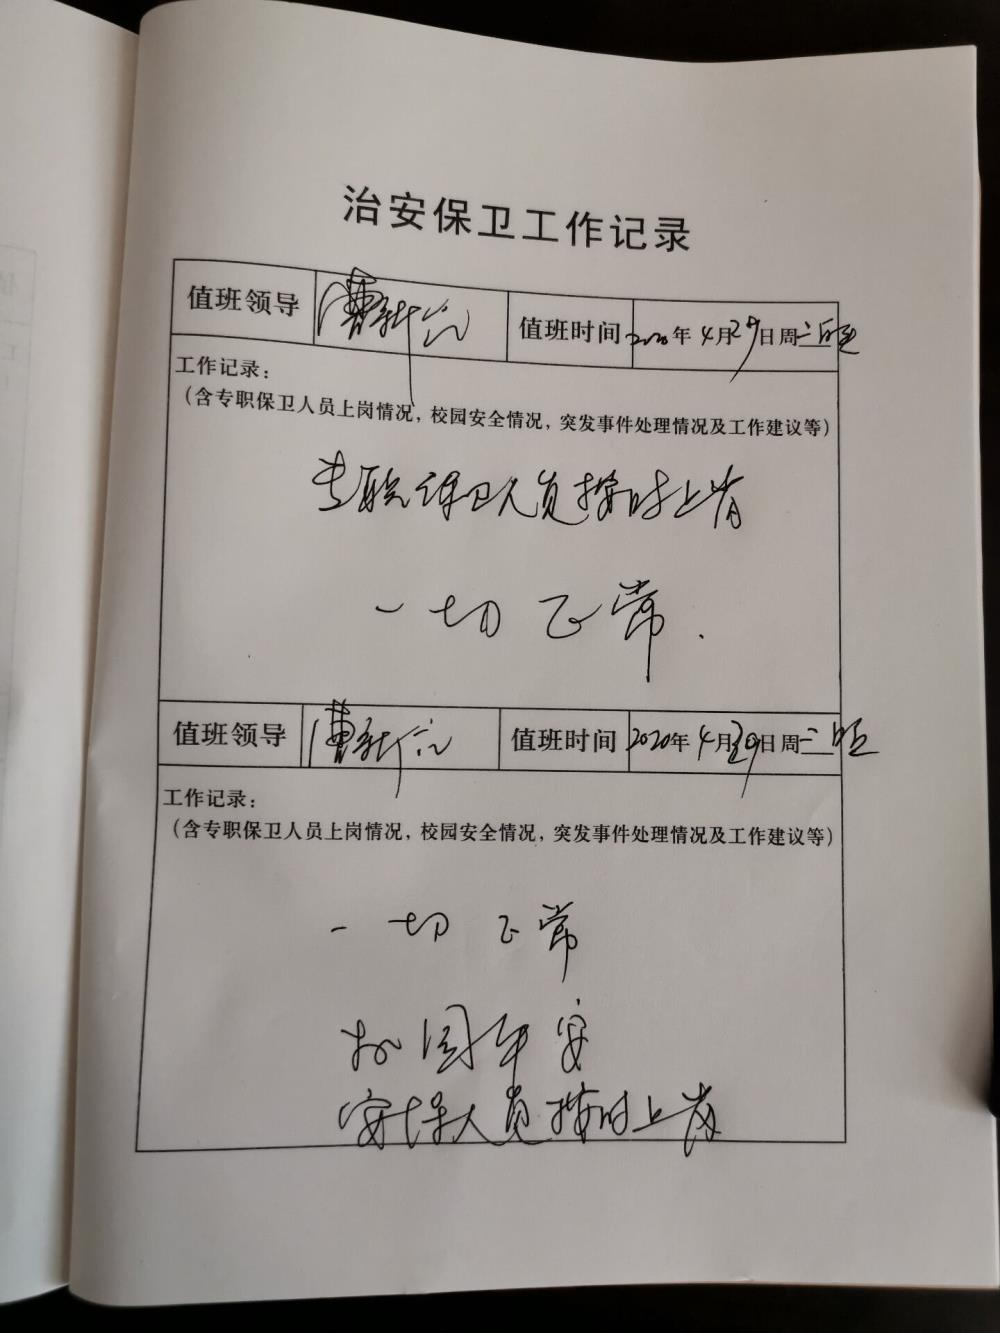 治安保卫工作记录
值班领导 曹新 值班时间 2020年4月29日周三
工作记录：
（含专职保卫人员上岗情况，校园安全情况，突发事件处理情况及工作建议等）
专职保卫人员按时上岗
一切正常.
值班领导 曹新 值班时间 2020年4月29日周三
工作记录：
（含专职保卫人员上岗情况，校园安全情况，突发事件处理情况及工作建议等）
一切正常
校园平安
安保人员按时上岗